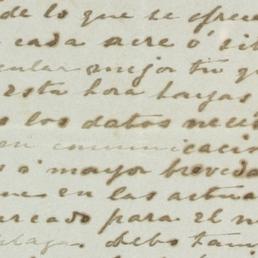 de lo que se ofrece
cada acre ó si
cular mejor tu q
esta hora hayas
los datos neces
en comunicacio
ó mayor breveda
nes en las actua
ercado para el m
plagas debo tam